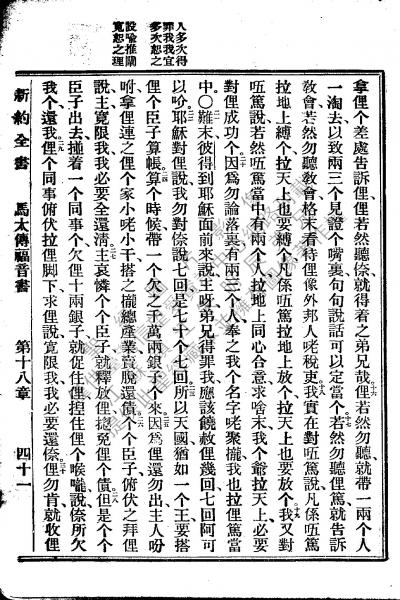 人多次得
罪我我宜
多次恕之
設喻推闡
寬恕之理
新約全書 馬太傳福音書 第十八章 四十一
拿俚個差處告訴俚俚若然聽倷就得着之弟兄哉俚若然勿聽就帶一兩個人
一淘去以致兩三个見證个嘴裏句句說話可以定當个若然勿聽俚篤就告訴
教會若然勿聽教會格末看待俚像外邦人咾稅吏我實在對𠲎篤說凡係𠲎篤
拉地上縛个拉天上也要縛个凡係𠲎篤拉地上放个拉天上也要放个我又對
𠲎篤說若然𠲎篤當中有兩个人拉地上同心合意求啥末我个爺拉天上必要
對俚成功个因爲勿論落裏有兩三个人奉之我个名字咾聚攏我也拉俚篤當
中○難末彼得到耶穌面前來說主呀弟兄得罪我應該饒赦俚幾回七回阿可
以吤耶穌對俚說我勿對倷說七回是七十个七回所以天國猶如一个王要搭
俚个臣子算帳算个時候帶一个欠之千萬兩銀子个來因爲俚還勿出主人吩
咐拿俚連之俚个家小咾小干搭之攏總產業賣脫還債个个臣子俯伏之拜俚
說主寬限我我必要全還淸主哀憐个个臣子就釋放俚搃免俚个債但是个个
臣子出去撞着一个同事个欠俚十兩銀子就促住俚揑住俚个喉嚨說倷所欠
我个還我俚个同事俯伏拉俚脚下求俚說寬限我我必要還倷俚勿肯就收俚